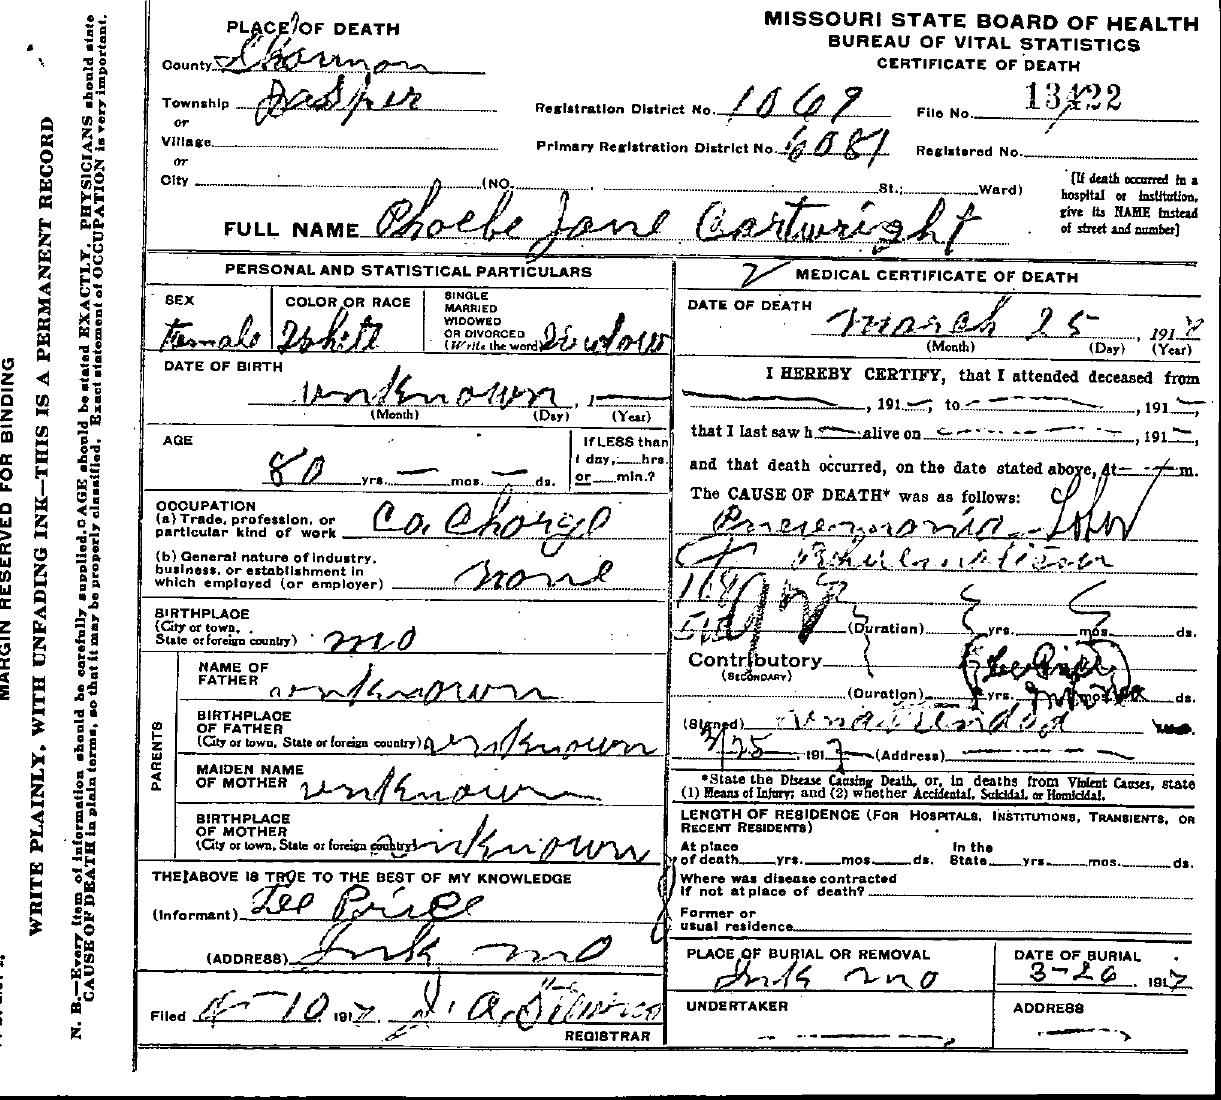 MARGIN RESERVED FOR BINDING
WRITE PLAINLY, WITH UNFADING INK—THIS IS A PERMANENT RECORD
N. B.—Every item of information should be carefully supplied. AGE should be stated EXACTLY. PHYSICIANS should state
CAUSE OF DEATH in plain terms, so that it may be properly classified. Exact statement of OCCUPATION is very important.
PLACE OF DEATH
County Shannon
Township Jasper
or
Village
or
City (NO. St.; Ward)
MISSOURI STATE BOARD OF HEALTH
BUREAU OF VITAL STATISTICS
CERTIFICATE OF DEATH
Registration District No. 1069 File No. 13422
Primary Registration District No. 6081 Registered No.
[If death occurred in a
hospital or institution,
give its NAME instead
of street and number]
FULL NAME Phoebe Jane Cartwright
PERSONAL AND STATISTICAL PARTICULARS
SEX
Female
COLOR OR RACE
White
SINGLE
MARRIED
WIDOWED
OR DIVORCED
(Write the word) Widow
DATE OF BIRTH
unknown, 1
(Month) (Day) (Year)
AGE
80 yrs. — mos. — ds.
If LESS than
1 day, hrs.
or min.?
OCCUPATION
(a) Trade, profession, or
particular kind of work Co. Charge
(b) General nature of industry,
business, or establishment in
which employed (or employer) none
BIRTHPLACE
(City or town,
State or foreign country) mo
PARENTS
NAME OF
FATHER unknown
BIRTHPLACE
OF FATHER
(City or town, State or foreign country) unknown
MAIDEN NAME
OF MOTHER unknown
BIRTHPLACE
OF MOTHER
(City or town, State or foreign country) unknown
THE ABOVE IS TRUE TO THE BEST OF MY KNOWLEDGE
(Informant) Lee Price
(ADDRESS) Ink mo
Filed 4-10 1917 J. A.
REGISTRAR
MEDICAL CERTIFICATE OF DEATH
DATE OF DEATH
March 25, 191
(Month) (Day) (Year)
I HEREBY CERTIFY, that I attended deceased from
—, 191—, to —, 191—,
that I last saw h— alive on —, 191—,
and that death occurred, on the date stated above, at — m.
The CAUSE OF DEATH* was as follows:
Pneumonia - Lobar
Rheumatism
(Duration) yrs. mos. ds.
Contributory
(SECONDARY)
Lee Price
(Duration) yrs. mos. ds.
(Signed)
3/25, 1917 (Address)
*State the Disease Causing Death, or, in deaths from Violent Causes, state
(1) Means of Injury; and (2) whether Accidental, Suicidal, or Homicidal.
LENGTH OF RESIDENCE (FOR HOSPITALS, INSTITUTIONS, TRANSIENTS, OR
RECENT RESIDENTS)
At place In the
of death yrs. mos. ds. State yrs. mos. ds.
Where was disease contracted
if not at place of death?
Former or
usual residence
PLACE OF BURIAL OR REMOVAL
Ink mo
DATE OF BURIAL
3-26, 1917
UNDERTAKER
ADDRESS